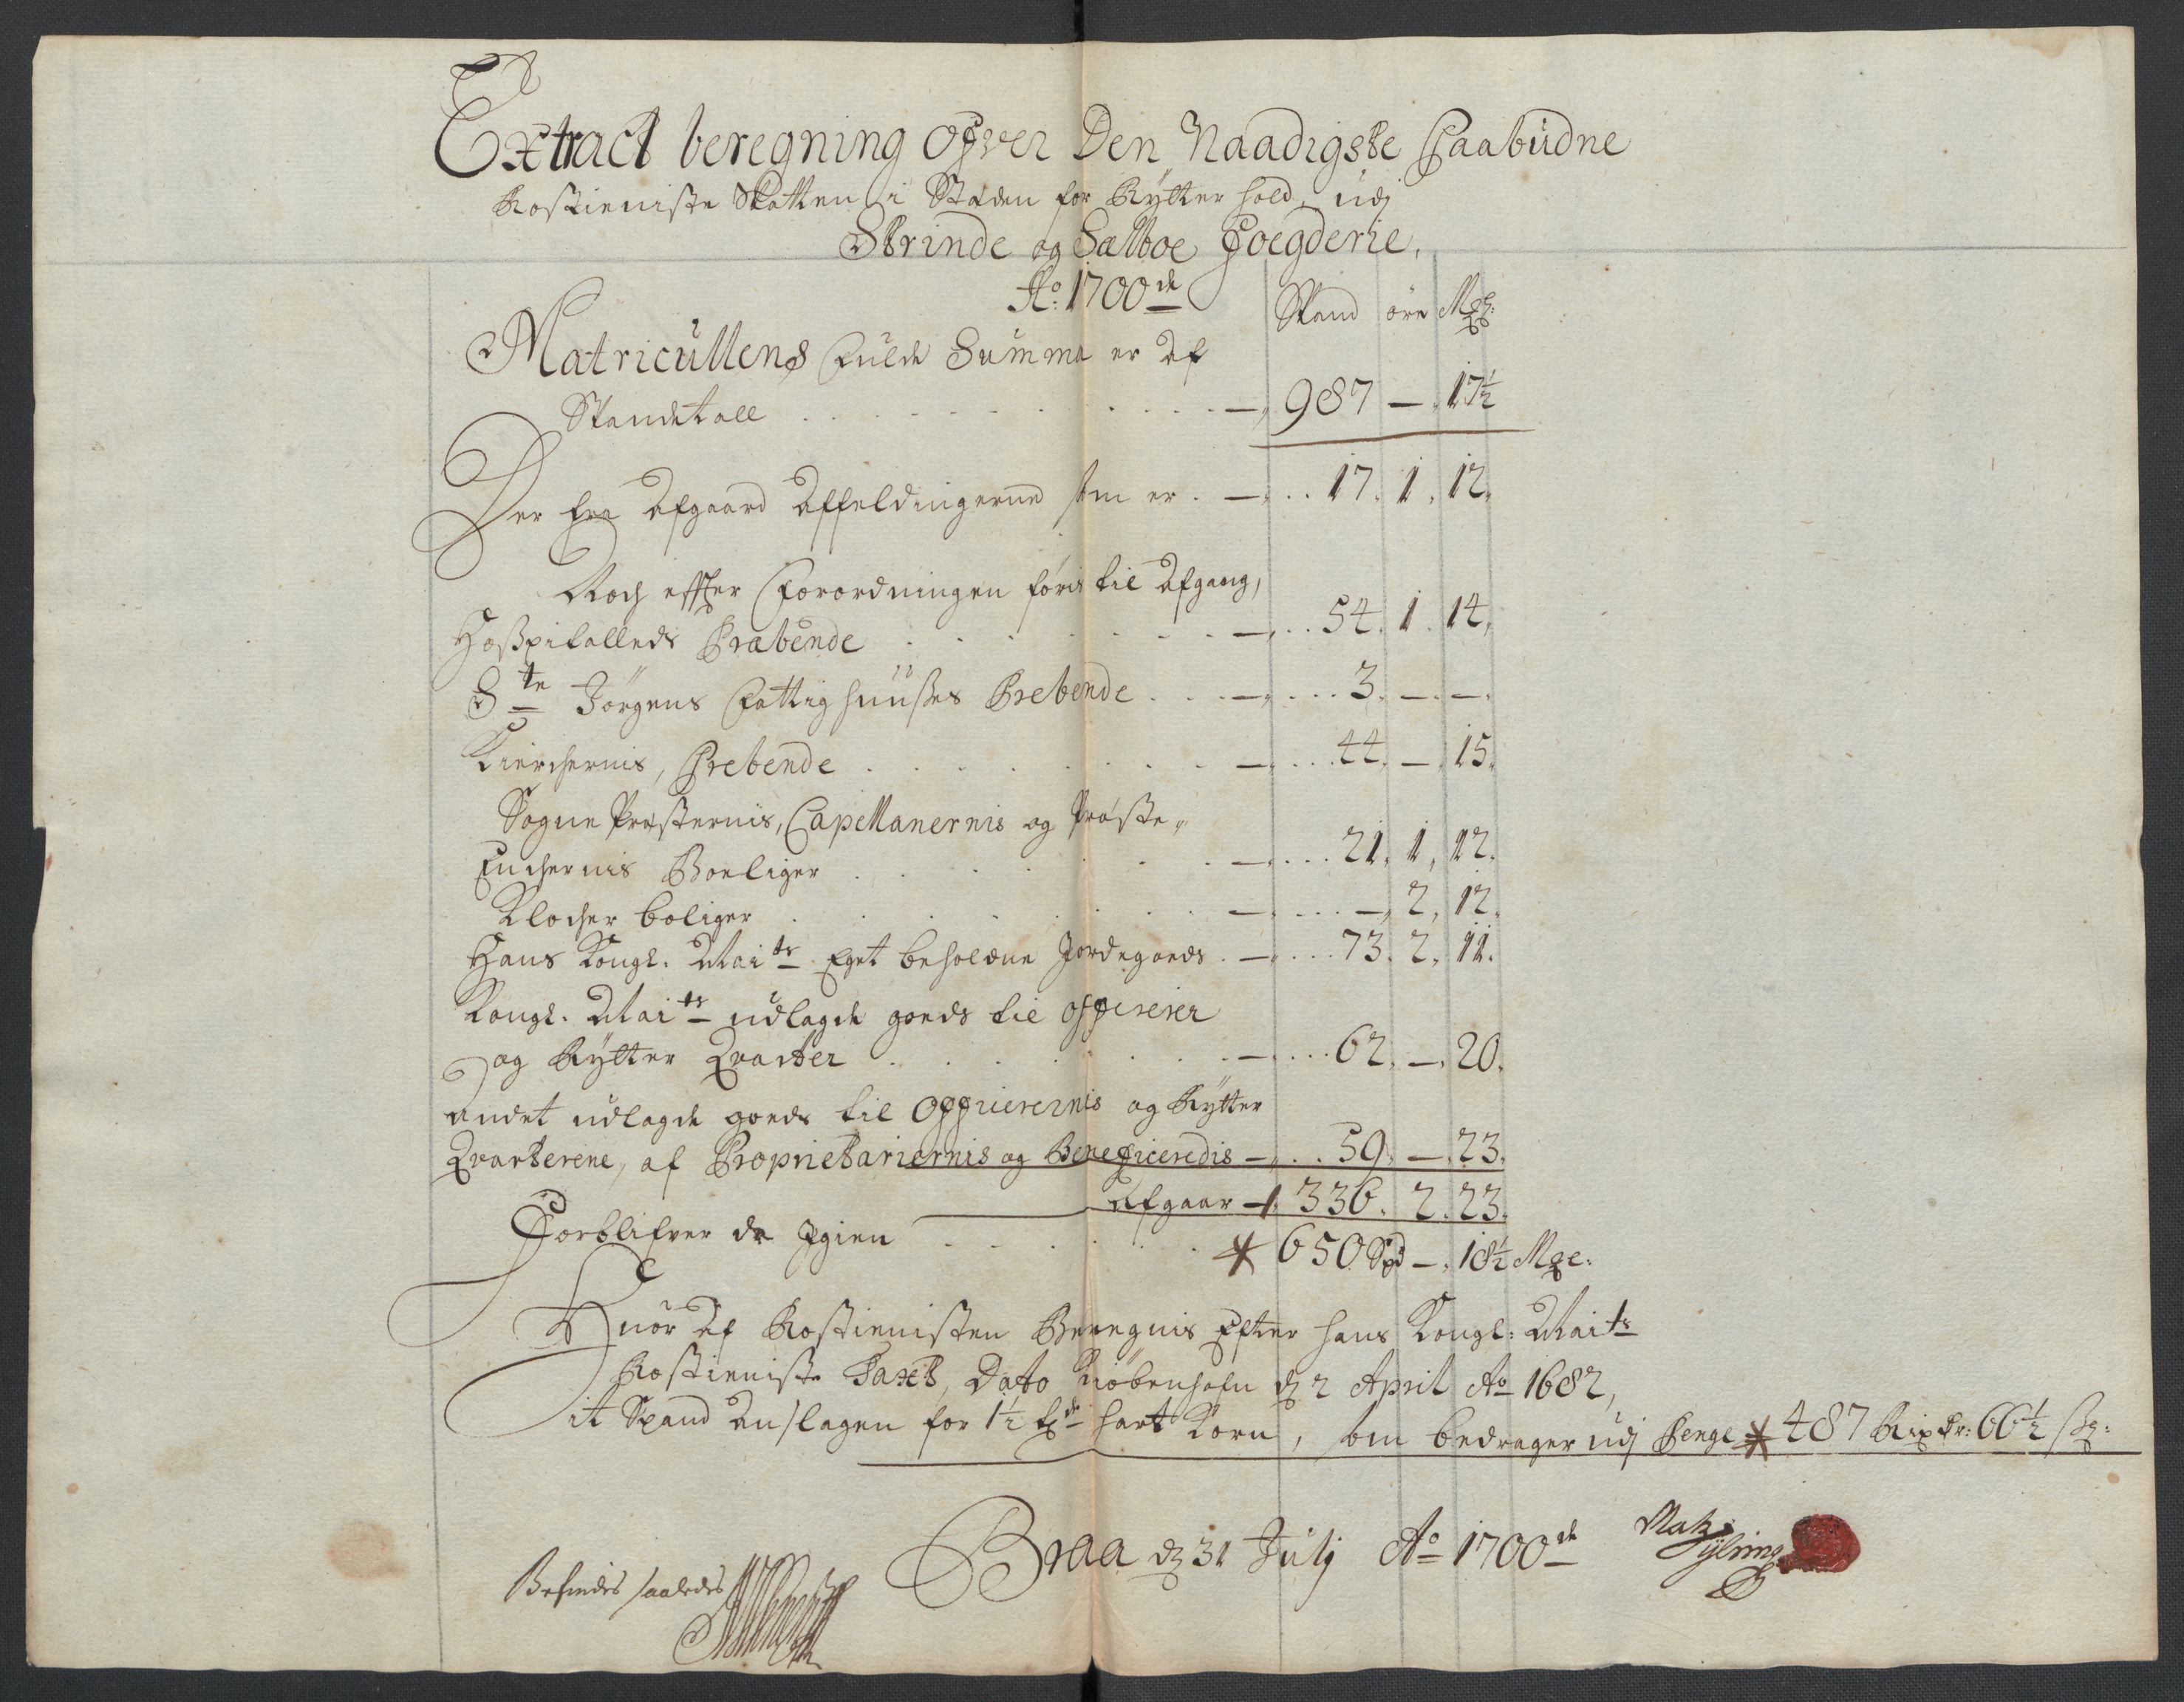 Extract beregning ofver Den Naadigste Paabudne
Rostieniste Skatten i Steden for Rytter hold, udj
Strinde og Sælboe Foegderie,
Ao: 1700de
Spand öre Mg:
Matricullens Fulde Summa er Af
Spandetall — 987 — 17½
Der fra Afgaard Affeldingerne som er — 17. 1. 12.
Noch effter Forordningen föris til Afgang,
Hosspitalleds Præbende — 54. 1. 14.
Ste Jörgens Fattig huusses Prebende — 3. — —
Kierchernis, Prebende — 44. — 15.
Sogne Presternis, Capellanernis og Præste
Enchernis Boeliger — 21. 1. 12.
Klocher boliger — — 2. 12.
Hans Kongl. Maits Eget beholdne Jordegoeds — 73. 2. 11.
Kongl. Maits udlagde goeds til officerer
og Rytter Qvarter — 62. — 20.
andet udlagde goeds til Officierernis og Rytter
Qvarterene, af Proprietariernis og Beneficeredis — 59. — 23.
afgaar — 336. 2. 23.
Forblifver da Igien 650 Spd — 18½ Mge:
Huor Af Rostienisten Beregnis Efter hans Kongl: Maits
Rostieniste Taxt, Dato Kiöbenhafn d 2 April Ao 1682,
it Spand Anslagen for 1½ tde hart Korn, som bedrager udj Penge 487 Rixdr: 66½ s:
Braa d 31 Julj Ao 1700de
Befindes saaledes